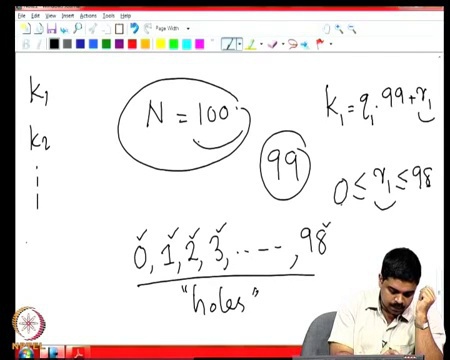 File Edit View Insert Actions Tools Help
Page Width
B
k1
k2
N = 100
99
k1 = q1 · 99 + r1
0 ≤ r1 ≤ 98
0, 1, 2, 3, ----, 98
"holes"